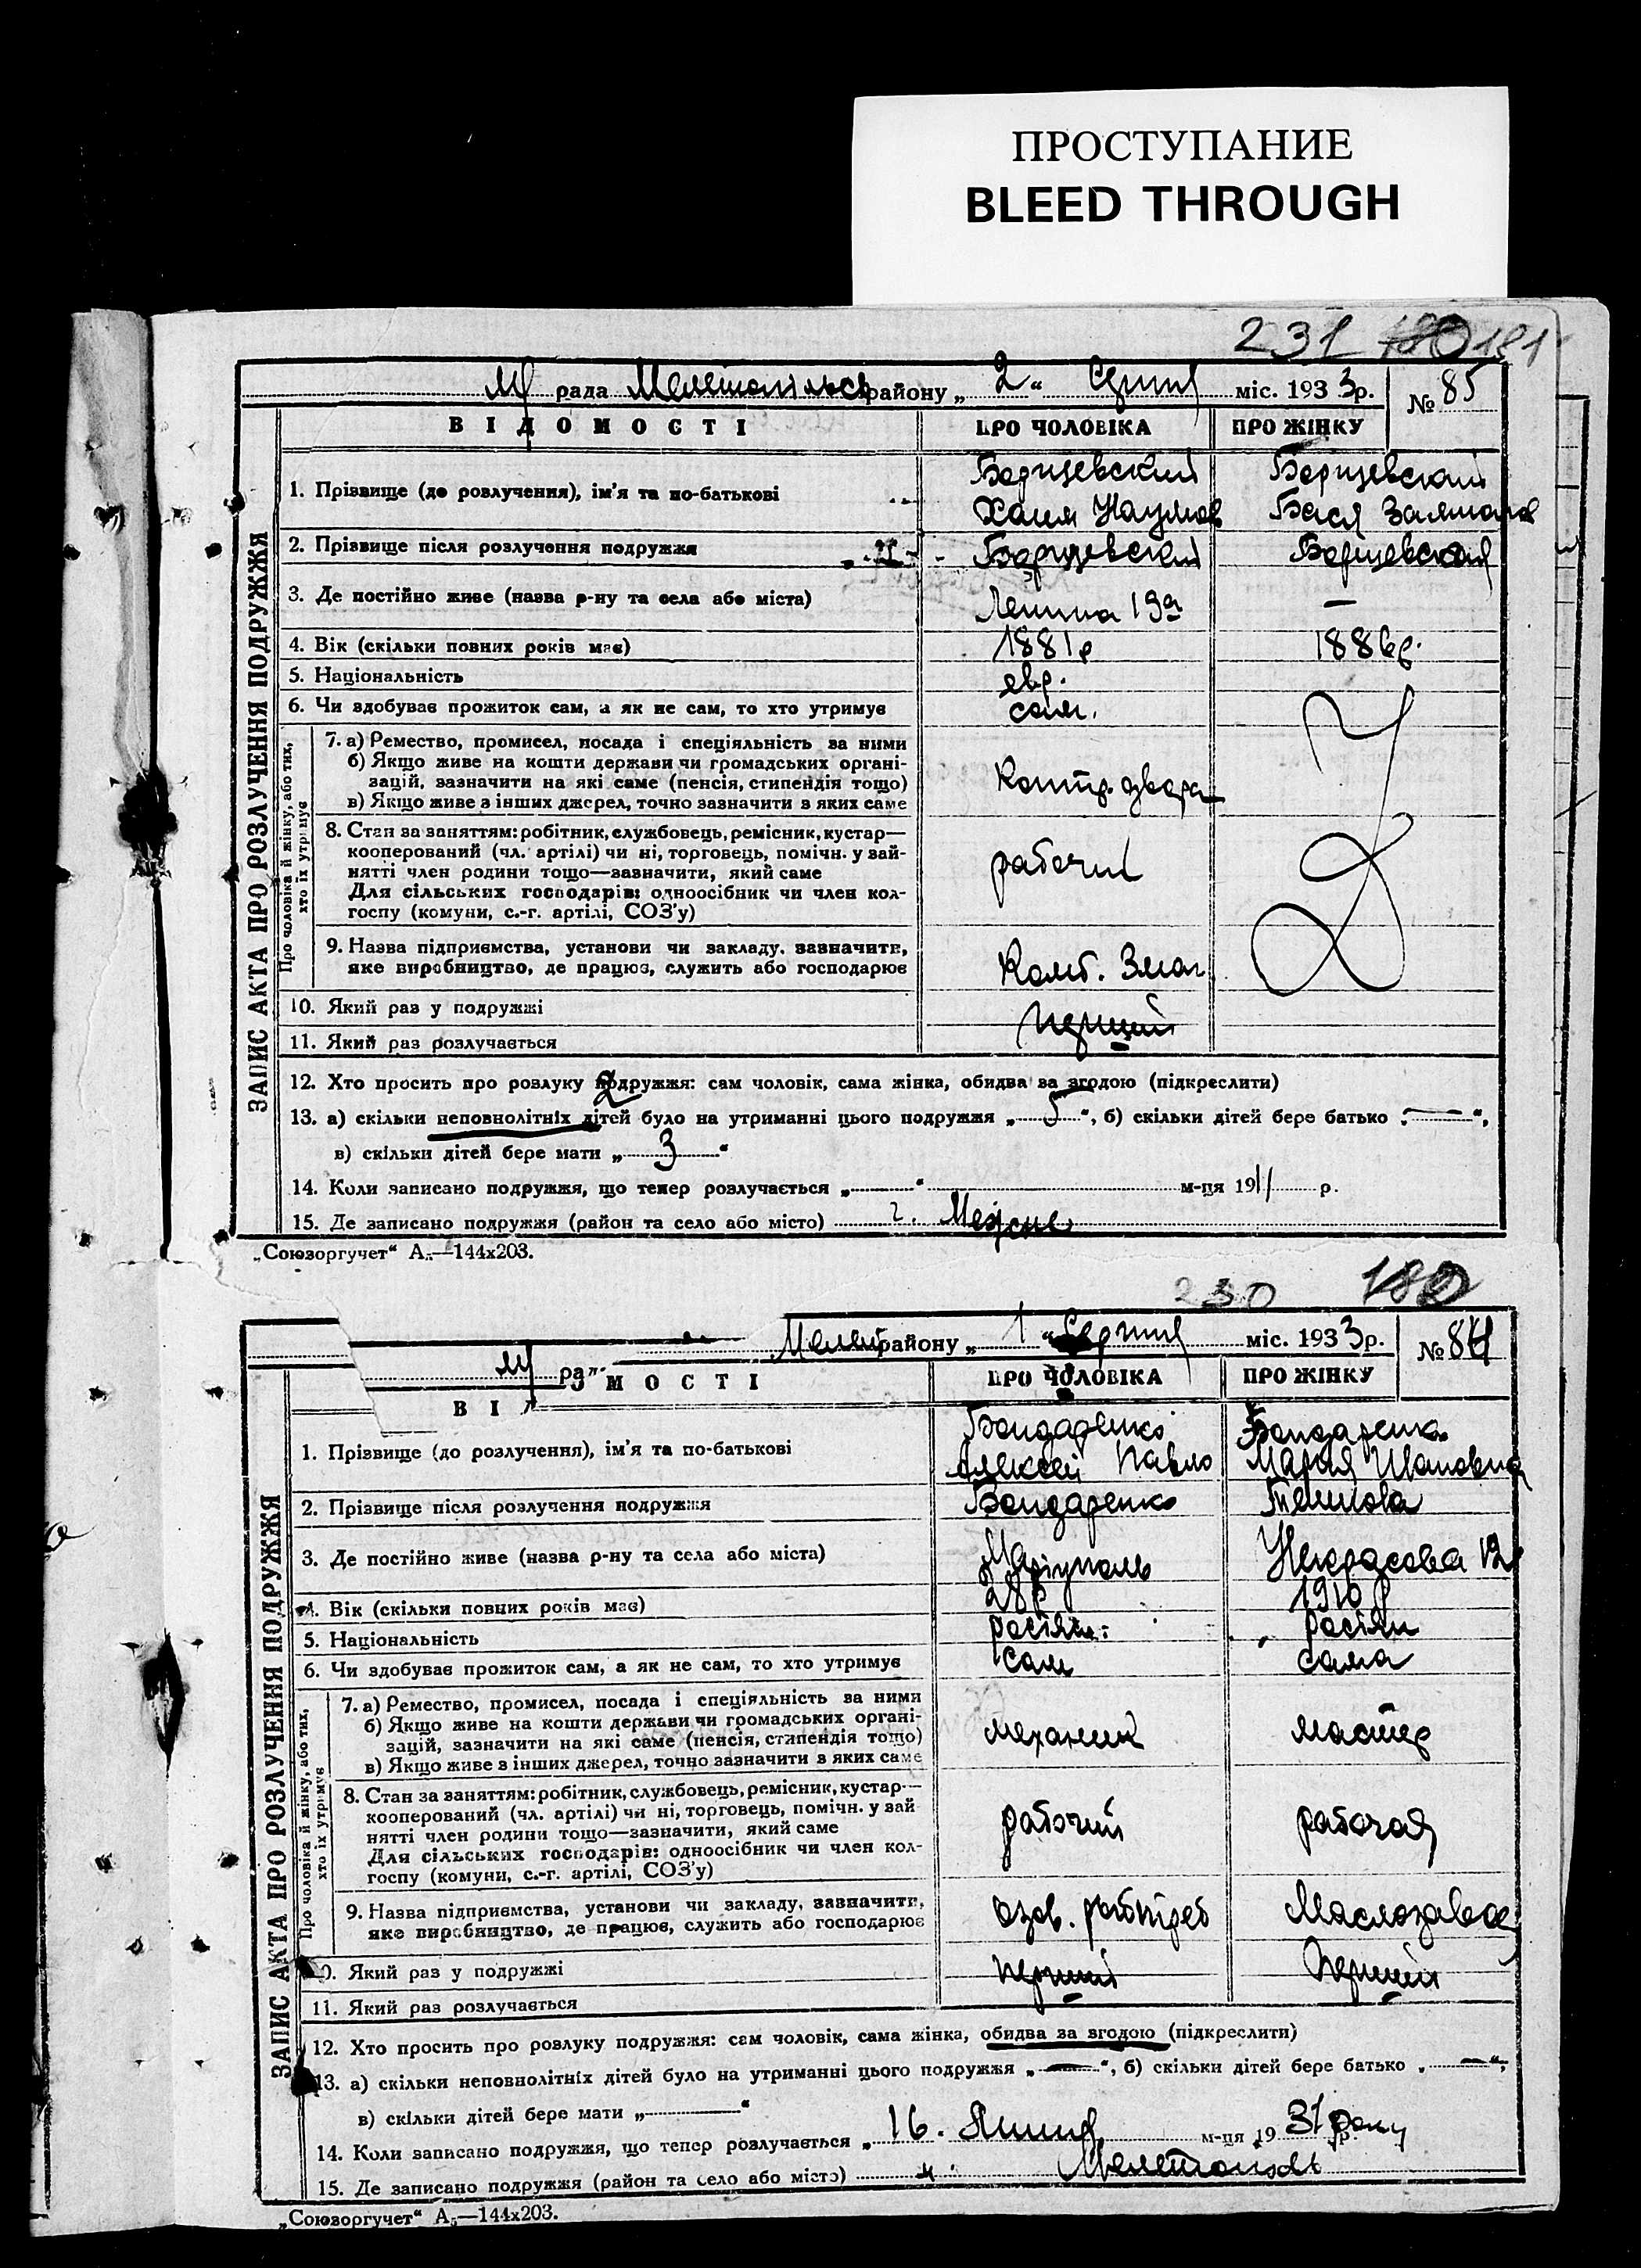 ПРОСТУПАНИЕ
BLEED THROUGH
231 180 181
рада Мелітопільськ району „ 2 “ Серпня міс. 1933 р. № 85
ВІДОМОСТІ ПРО ЧОЛОВІКА ПРО ЖІНКУ
ЗАПИС АКТА ПРО РОЗЛУЧЕННЯ ПОДРУЖЖЯ
1. Прізвище (до розлучення), ім'я та по-батькові
Борщевский Борщевский
Хаим Наумов Бася
2. Прізвище після розлучення подружжя Борщевский Борщевская
3. Де постійно живе (назва р-ну та села або міста) Ленина 19а —
4. Вік (скільки повних років має) 1881р 1886р.
5. Національність евр.
6. Чи здобуває прожиток сам, а як не сам, то хто утримує сам.
Про чоловіка й жінку, або тих, хто їх утримує
7. а) Ремество, промисел, посада і спеціяльність за ними
б) Якщо живе на кошти держави чи громадських органі-
зацій, зазначити на які саме (пенсія, стипендія тощо)
в) Якщо живе з інших джерел, точно зазначити в яких саме
двора
8. Стан за заняттям: робітник, службовець, ремісник, кустар—
кооперований (чл. артілі) чи ні, торговець, помічн. у зай-
нятті член родини тощо—зазначити, який саме
Для сільських господарів: одноосібник чи член кол-
госпу (комуни, с.-г. артілі, СОЗ'у)
рабочий
9. Назва підприємства, установи чи закладу, зазначити,
яке виробництво, де працює, служить або господарює
10. Який раз у подружжі
перший
11. Який раз розлучається
12. Хто просить про розлуку подружжя: сам чоловік, сама жінка, обидва за згодою (підкреслити)
2
13. а) скільки неповнолітніх дітей було на утриманні цього подружжя „ 5 “, б) скільки дітей бере батько „ — “,
в) скільки дітей бере мати „ 3 “
14. Коли записано подружжя, що тепер розлучається „ “ м-ця 1911 р.
15. Де записано подружжя (район та село або місто)
„Союзоргучет“ А₅—144х203.
230 180
Мелит району „ 1 “ Серпня міс. 1933 р. № 84
ра
ВІ МОСТІ ПРО ЧОЛОВІКА ПРО ЖІНКУ
ЗАПИС АКТА ПРО РОЗЛУЧЕННЯ ПОДРУЖЖЯ
1. Прізвище (до розлучення), ім'я та по-батькові
Бондаренко Бондаренко
Алексей Павло Мария Ивановна
2. Прізвище після розлучення подружжя Бондаренко
3. Де постійно живе (назва р-ну та села або міста) Маріуполь Некрасова 12
4. Вік (скільки повних років має) 28р 1910 р
5. Національність росіян. росіян
6. Чи здобуває прожиток сам, а як не сам, то хто утримує сам сама
Про чоловіка й жінку, або тих, хто їх утримує
7. а) Ремество, промисел, посада і спеціяльність за ними
б) Якщо живе на кошти держави чи громадських органі-
зацій, зазначити на які саме (пенсія, стипендія тощо)
в) Якщо живе з інших джерел, точно зазначити в яких саме
механик мастер
8. Стан за заняттям: робітник, службовець, ремісник, кустар—
кооперований (чл. артілі) чи ні, торговець, помічн. у зай
нятті член родини тощо—зазначити, який саме
Для сільських господарів: одноосібник чи член кол-
госпу (комуни, с.-г. артілі, СОЗ'у)
рабочий рабочая
9. Назва підприємства, установи чи закладу, зазначити,
яке виробництво, де працює, служить або господарює
Маслозавод
0. Який раз у подружжі
перший перший
11. Який раз розлучається
12. Хто просить про розлуку подружжя: сам чоловік, сама жінка, обидва за згодою (підкреслити)
13. а) скільки неповнолітніх дітей було на утриманні цього подружжя „ — “, б) скільки дітей бере батько „ — “,
в) скільки дітей бере мати „ — “
14. Коли записано подружжя, що тепер розлучається „ 16. м-ця 1931 р. року
15. Де записано подружжя (район та село або місто) м. Мелетополь
„Союзоргучет“ А₅—144х203.